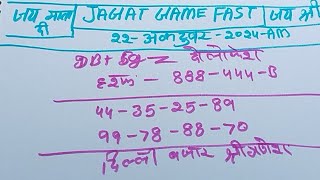 जय माता दी JAGAT GAME FAST जय श्री
22-अक्टुबर-2024-AM
DB+ Gg =
हरूफ - 888-444-B
44-35-25-89
99-78-88-70
दिल्ली बजार श्री गणेश